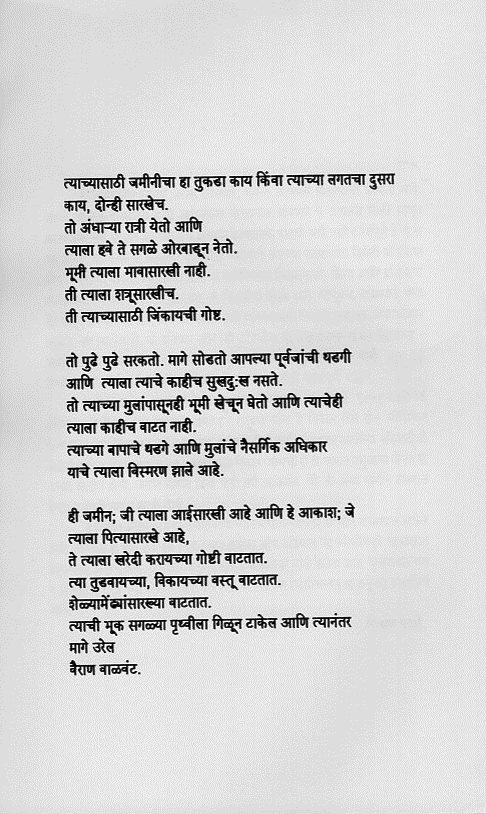 त्याच्यासाठी जमीनीचा हा तुकडा काय किंवा त्याच्या लगतचा दुसरा
काय, दोन्ही सारखेच.
तो अंधाऱ्या रात्री येतो आणि
त्याला हवे ते सगळे ओरबाडून नेतो.
भूमी त्याला भावासारखी नाही.
ती त्याला शत्रूसारखीच.
ती त्याच्यासाठी जिंकायची गोष्ट.
तो पुढे पुढे सरकतो. मागे सोडतो आपल्या पूर्वजांची थडगी
आणि त्याला त्याचे काहीच सुखदु:ख नसते.
तो त्याच्या मुलांपासूनही भूमी खेचून घेतो आणि त्याचेही
त्याला काहीच वाटत नाही.
त्याच्या बापाचे थडगे आणि मुलांचे नैसर्गिक अधिकार
याचे त्याला विस्मरण झाले आहे.
ही जमीन; जी त्याला आईसारखी आहे आणि हे आकाश; जे
त्याला पित्यासारखे आहे,
ते त्याला खरेदी करायच्या गोष्टी वाटतात.
त्या तुडवायच्या, विकायच्या वस्तू वाटतात.
शेळ्यामेंढ्यांसारख्या वाटतात.
त्याची भूक सगळ्या पृथ्वीला गिळून टाकेल आणि त्यानंतर
मागे उरेल
वैराण वाळवंट.